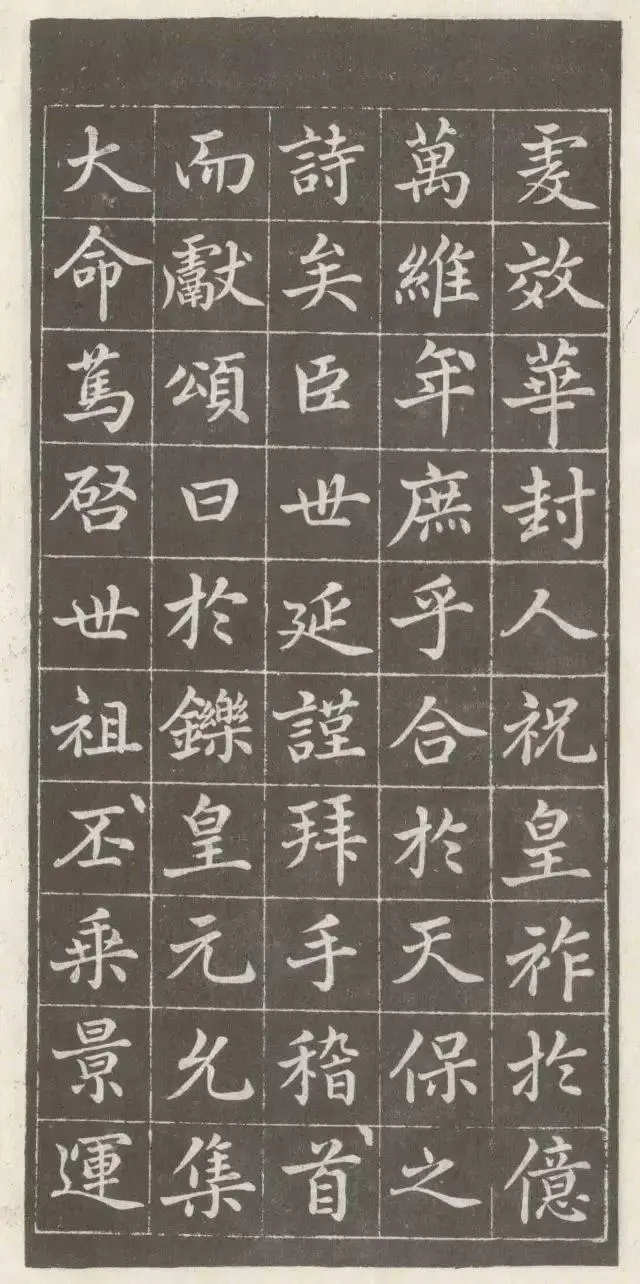 虔效華封人祝皇祚於億
萬維年庶乎合於天保之
詩矣臣世延謹拜手稽首
而獻頌曰於鑠皇元允集
大命篤啓世祖丕乘景運